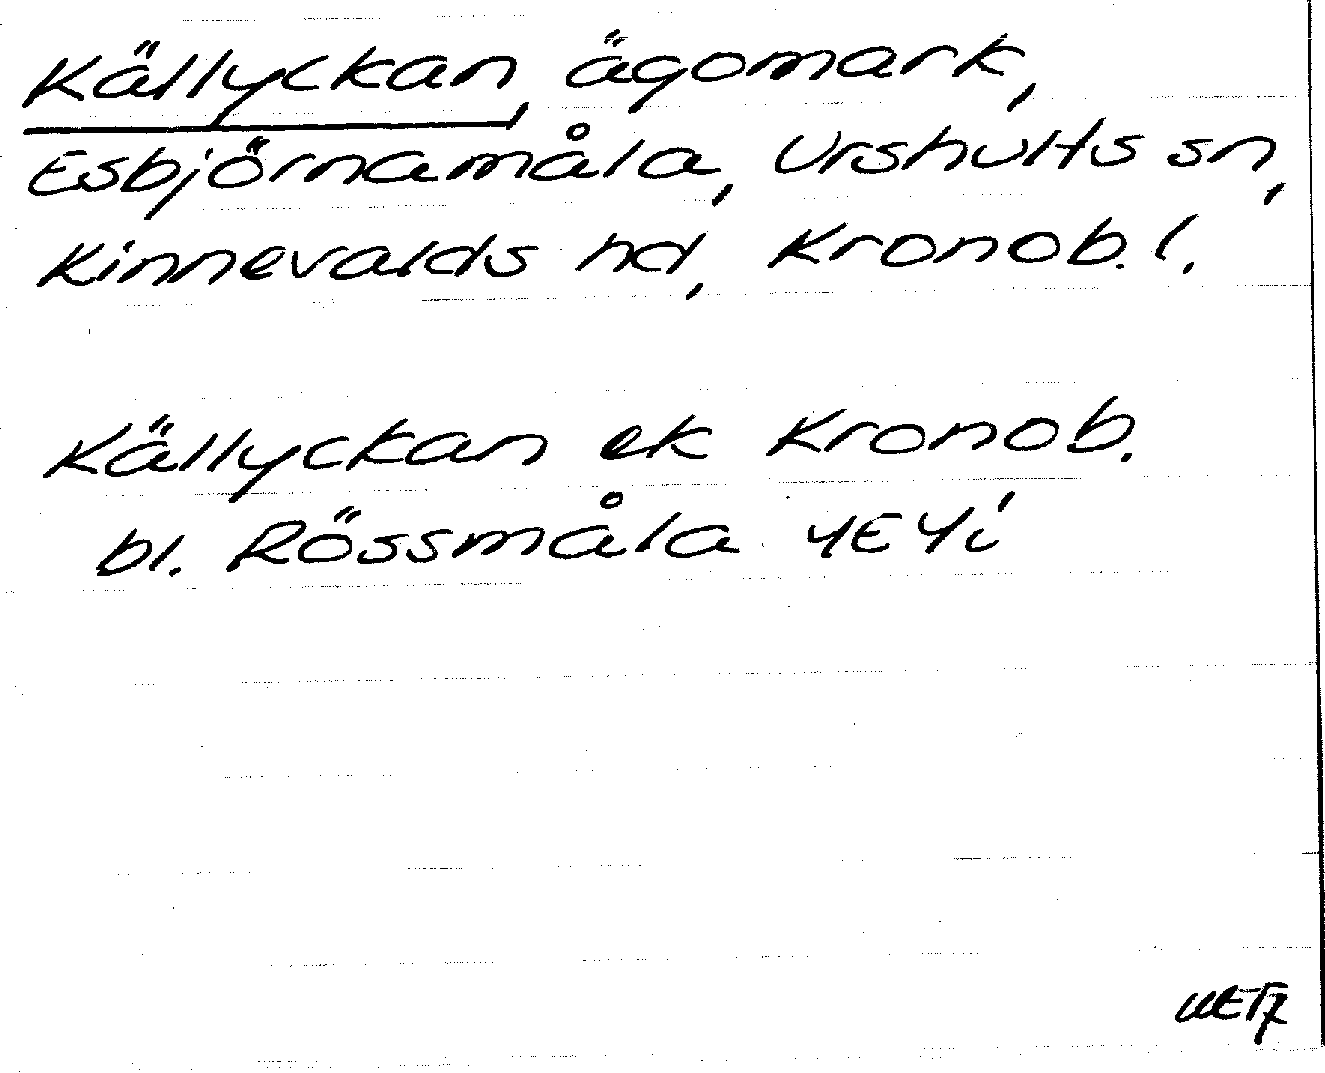 Källyckan, ägomark,
Esbjörnamåla, Urshults sn,
Kinnevalds hd, Kronob. l.
Källyckan ek Kronob.
bl. Rössmåla 4E4i